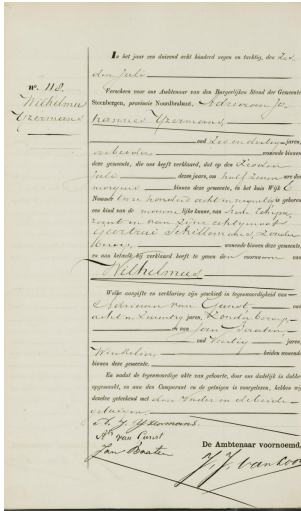 In het jaar een duizend acht honderd zes en tachtig, den Zes
den Juli
nº. 118.
Verscheen voor ons Ambtenaar van den Burgerlijken Stand der Gemeente
Wilhelmus
Steenbergen, provincie Noordbrabant, Adrianus Jo-
IJzermans
hannes IJzermans
oud Zes en dertig jaren,
arbeider wonende binnen
deze gemeente, die ons heeft verklaard, dat op den Zesden
Juli dezes jaars, om half een ure des
morgens binnen deze gemeente, in het huis Wijk
Nommer twee honderd acht en negentig is geboren
een kind van de mannelijke kunne, van
en van zijne echtgenoot
Geertrui Schillemans, zonder
beroep, wonende binnen deze gemeente,
en aan hetzelk hij verklaard heeft te geven den voornaam van
Wilhelmus
Welke aangifte en verklaring zijn geschied in tegenwoordigheid van
Adriaan van Cunst, oud
acht en twintig jaren, Zonder beroep
en van Jan Baaten,
oud Veertig jaren,
Winkelier beiden wonende
binnen deze gemeente.
En nadat de tegenwoordige akte van geboorte, door ons dadelijk is dubbel
opgemaakt, en aan den Comparant en de getuigen is voorgelezen, hebben wij
dezelve geteekend met den Vader en de beide
getuigen.
A. J. IJzermans.
A. van Cunst
Jan Baaten
De Ambtenaar voornoemd,